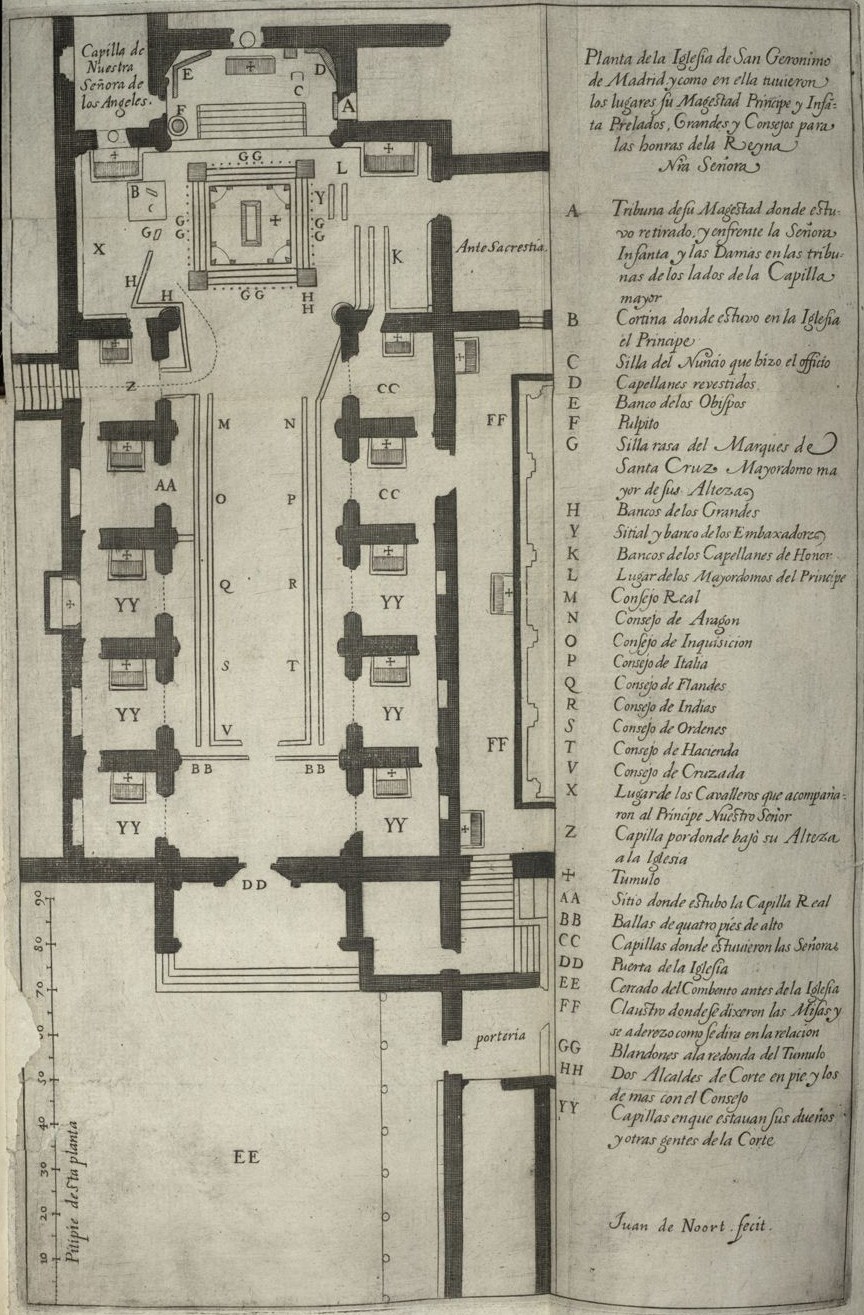 Capilla de
Nuestra
Señora de
los Angeles.
E
D
C
A
F
G G
L
B
C
G
G
G
Y
G
G
X
K
Ante Sacrestia.
H
H
G G
H
H
Z
CC
M
N
FF
AA
O
P
CC
Q
R
YY
YY
S
T
YY
YY
V
FF
BB
BB
YY
YY
DD
porteria
EE
90
80
70
60
50
40
30
20
10
Pitipie desta planta
Planta de la Iglesia de San Geronimo
de Madrid y como en ella tuuieron
los lugares su Magestad Principe y Infã-
ta Prelados, Grandes y Consejos para
las honras dela Reyna
Nrã Señora
A Tribuna de su Magestad donde estu-
vo retirado, y enfrente la Señora
Infanta y las Damas en las tribu-
nas de los lados de la Capilla
mayor
B Cortina donde estuvo en la Iglesia
el Principe
C Silla del Nuncio que hizo el officio
D Capellanes revestidos
E Banco de los Obispos
F Pulpito
G Silla rasa del Marques de
Santa Cruz Mayordomo ma
yor de sus Altezas
H Bancos de los Grandes
Y Sitial y banco de los Embaxadores
K Bancos de los Capellanes de Honor
L Lugar de los Mayordomos del Principe
M Consejo Real
N Consejo de Aragon
O Consejo de Inquisicion
P Consejo de Italia
Q Consejo de Flandes
R Consejo de Indias
S Consejo de Ordenes
T Consejo de Hacienda
V Consejo de Cruzada
X Lugar de los Cavalleros que acompaña-
ron al Principe Nuestro Señor
Z Capilla por donde bajò su Alteza
a la Iglesia
✢ Tumulo
AA Sitio donde estubo la Capilla Real
BB Ballas de quatro pies de alto
CC Capillas donde estuuieron las Señoras
DD Puerta de la Iglesia
EE Cercado del Combento antes de la Iglesia
FF Claustro donde se dixeron las Misas y
se aderezo como se dira en la relacion
GG Blandones a la redonda del Tumulo
HH Dos Alcaldes de Corte en pie y los
de mas con el Consejo
YY Capillas en que estauan sus dueños
y otras gentes de la Corte
Juan de Noort fecit.